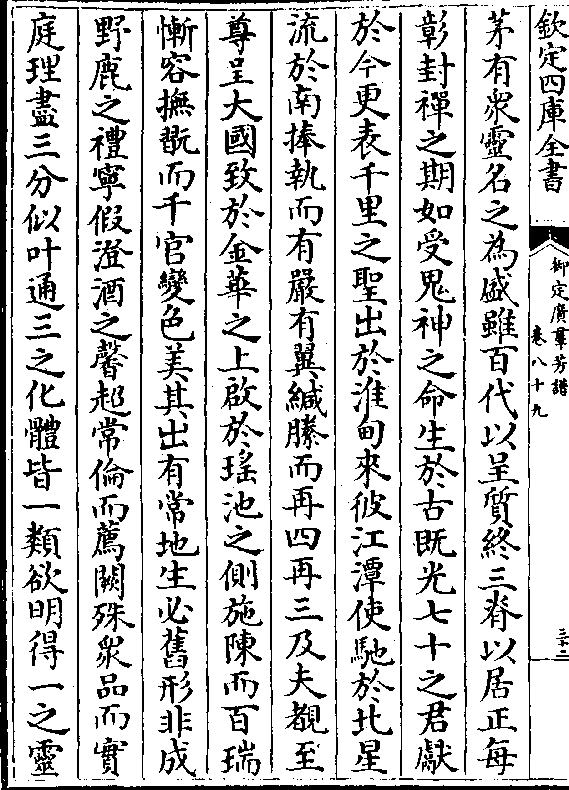 欽定四庫全書
御定廣羣芳譜
卷八十九
茅有衆靈名之為盛雖百代以呈質終三脊以居正每
彰封禪之期如受鬼神之命生於古既光七十之君獻
於今更表千里之聖出於淮甸來彼江潭使馳於北星
流於南捧執而有嚴有翼緘縢而再四再三及夫覩至
尊呈大國致於金華之上啟於瑤池之側施陳而百瑞
慚容撫翫而千官變色美其出有常地生必舊形非成
野鹿之禮寧假澄酒之馨超常倫而薦闕殊衆品而實
庭理盡三分似叶通三之化體皆一類欲明得一之靈